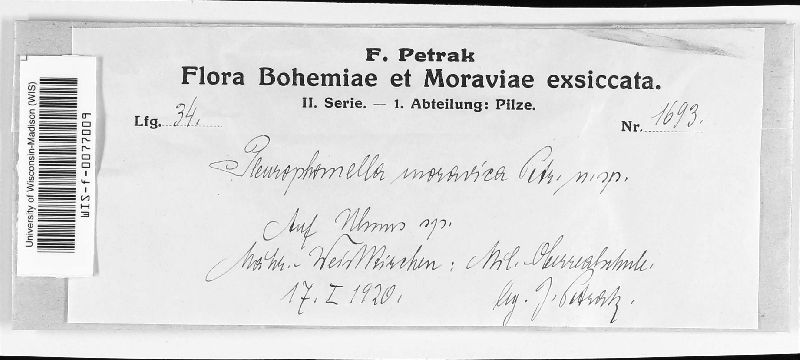 F. Petrak
Flora Bohemiae et Moraviae exsiccata.
II. Serie. — 1. Abteilung: Pilze.
Lfg. 34.
Nr. 1693.
Pleurophomella moravica Petr. n. sp.
Auf Ulmus sp.
Mähr.-Weisskirchen: Mil. Oberrealschule.
17. I 1920. leg. J. Petrak.
University of Wisconsin-Madison (WIS)
WIS-f-0077009